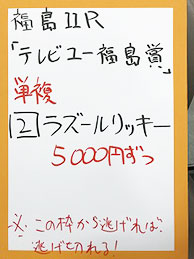 福島11R
「テレビユー福島賞」
単複
2 ラズールリッキー
5000円ずつ
※この枠から逃げれば
逃げ切れる!